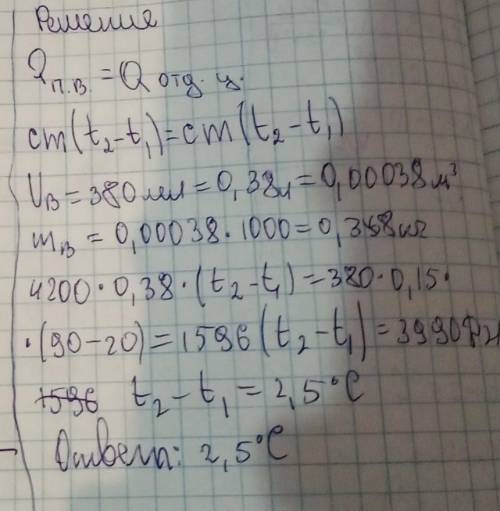 Решение
Qп.в = Q отд. ц.
cm(t₂-t₁)=cm(t₂-t₁)
Vв = 380мл = 0,38л = 0,00038м³
mв = 0,00038·1000=0,38кг
4200·0,38·(t₂-t₁)=380·0,15·
·(90-20)=1596(t₂-t₁)=3990
1596 t₂-t₁=2,5°C
Ответ: 2,5°C